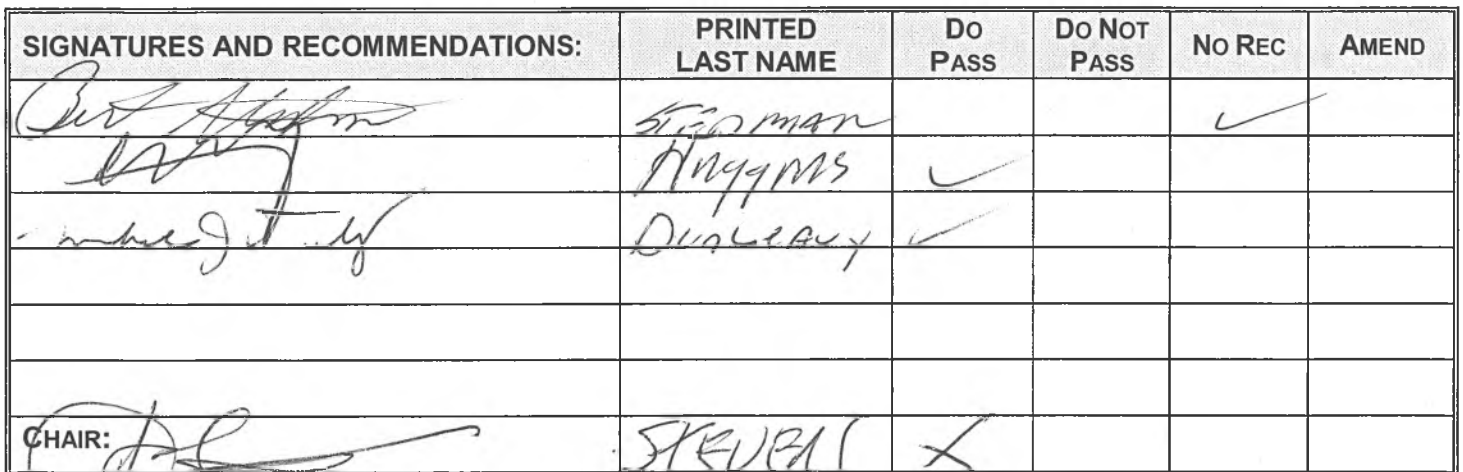 SIGNATURES AND RECOMMENDATIONS: PRINTED LAST NAME DO PASS DO NOT PASS NO REC AMEND
Bert Stedman STEDMAN ✓
Huggins ✓
Dunleavy ✓
CHAIR: STEVENS X